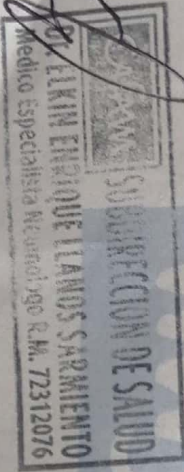 SUBDIRECCION DE SALUD
ELKIN ENRIQUE LLANOS SARMIENTO
Medico Especialista Neumologo R.M. 72312076